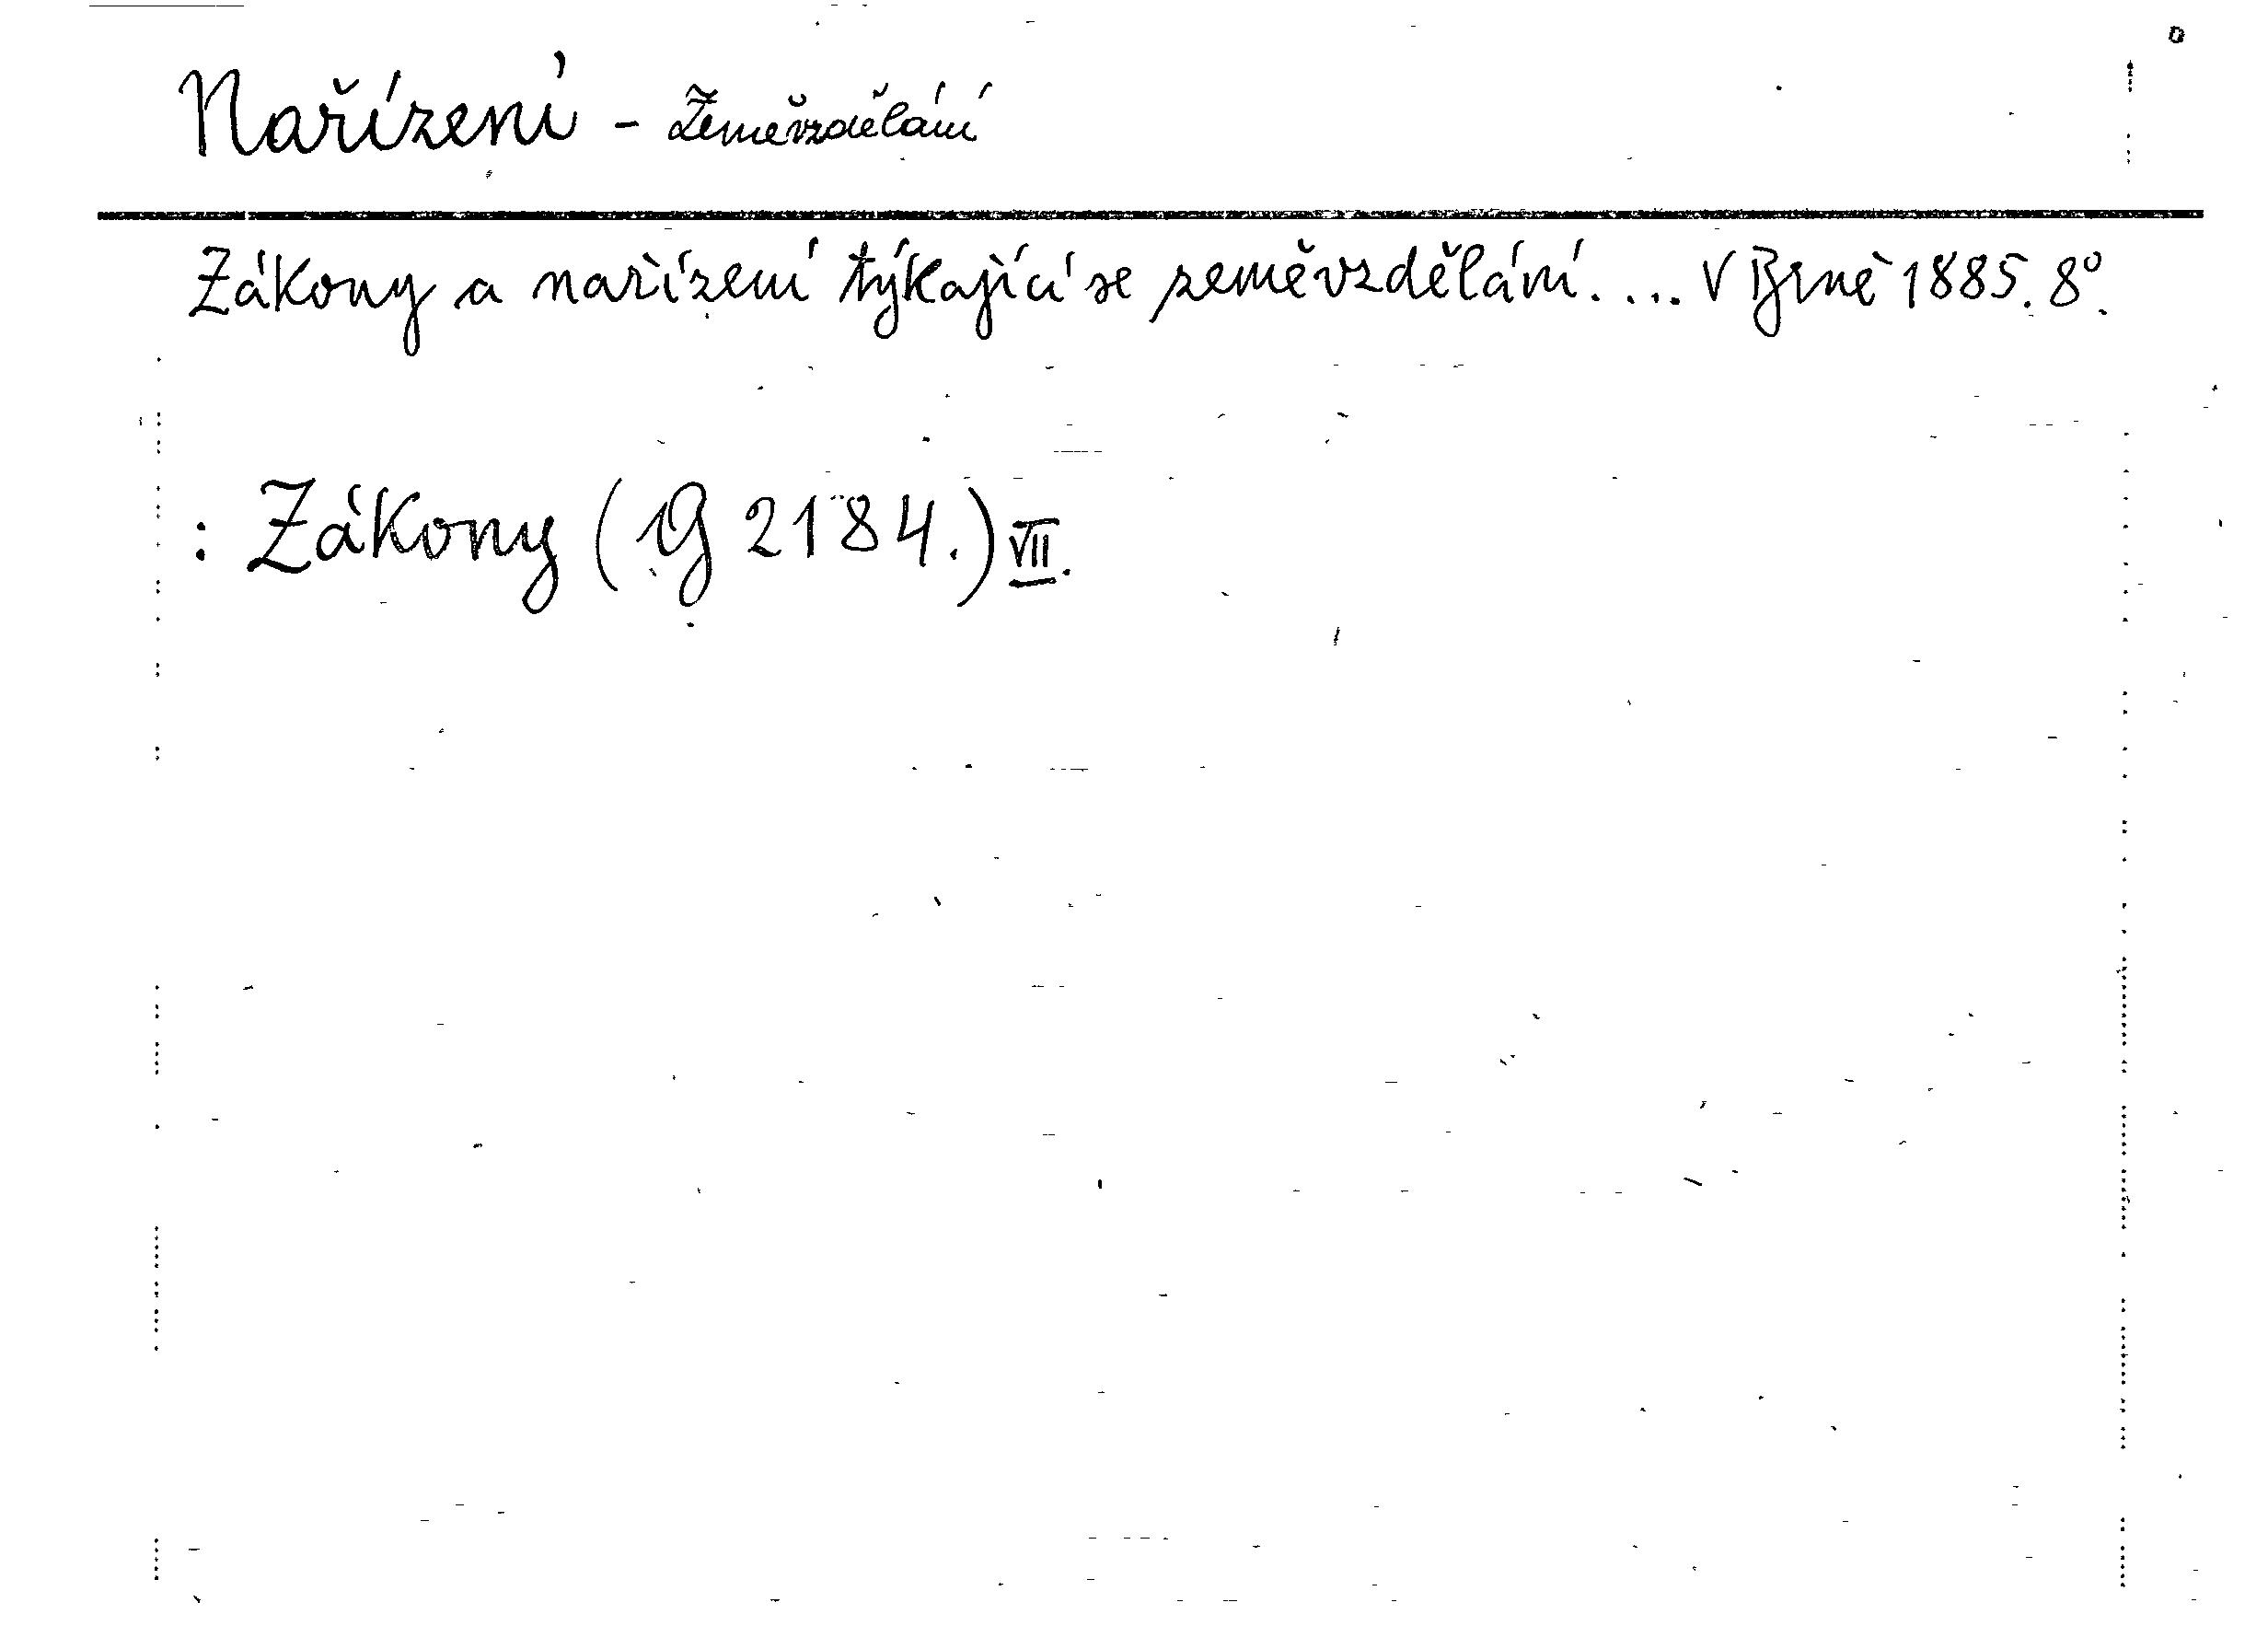 Nařízení - Zemévzdělání
Zákony a nařízení týkající se zemévzdělání.... V Brně 1885. 8º.
: Zákony (G 2184.) VII.